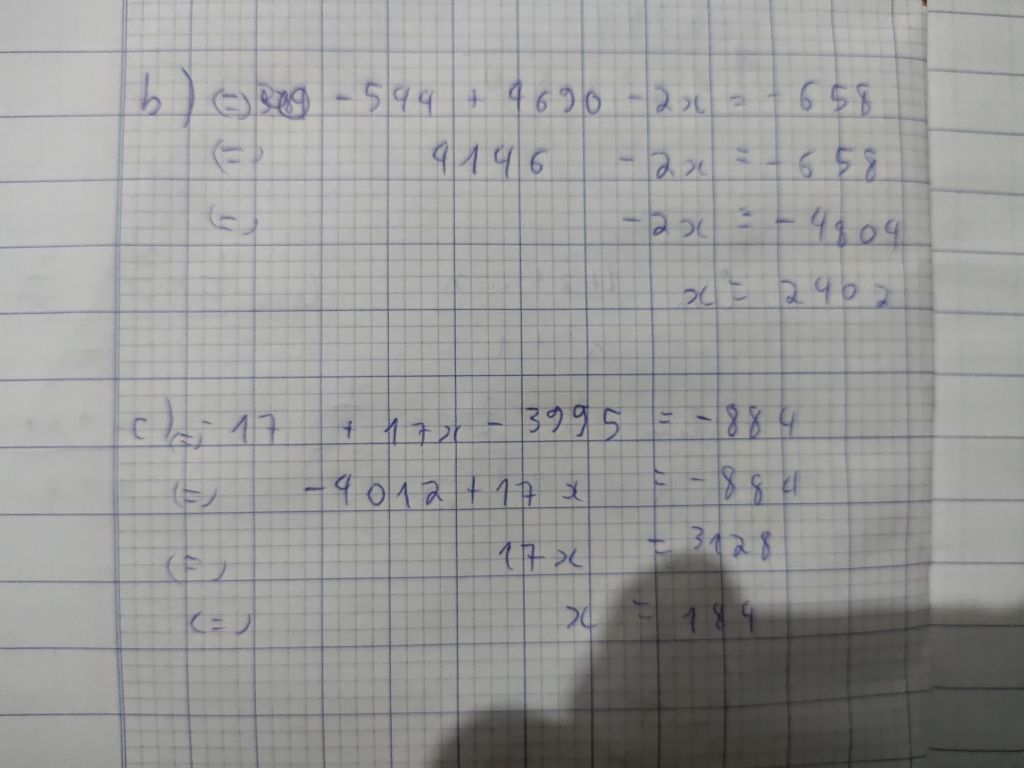 b) (=) - 544 + 4690 - 2x = - 658
(=) 4146 - 2x = - 658
(=) - 2x = - 4804
x = 2402
c) (=) - 17 + 17x - 3995 = - 884
(=) - 4012 + 17x = - 884
(=) 17x = 3128
(=) x = 184